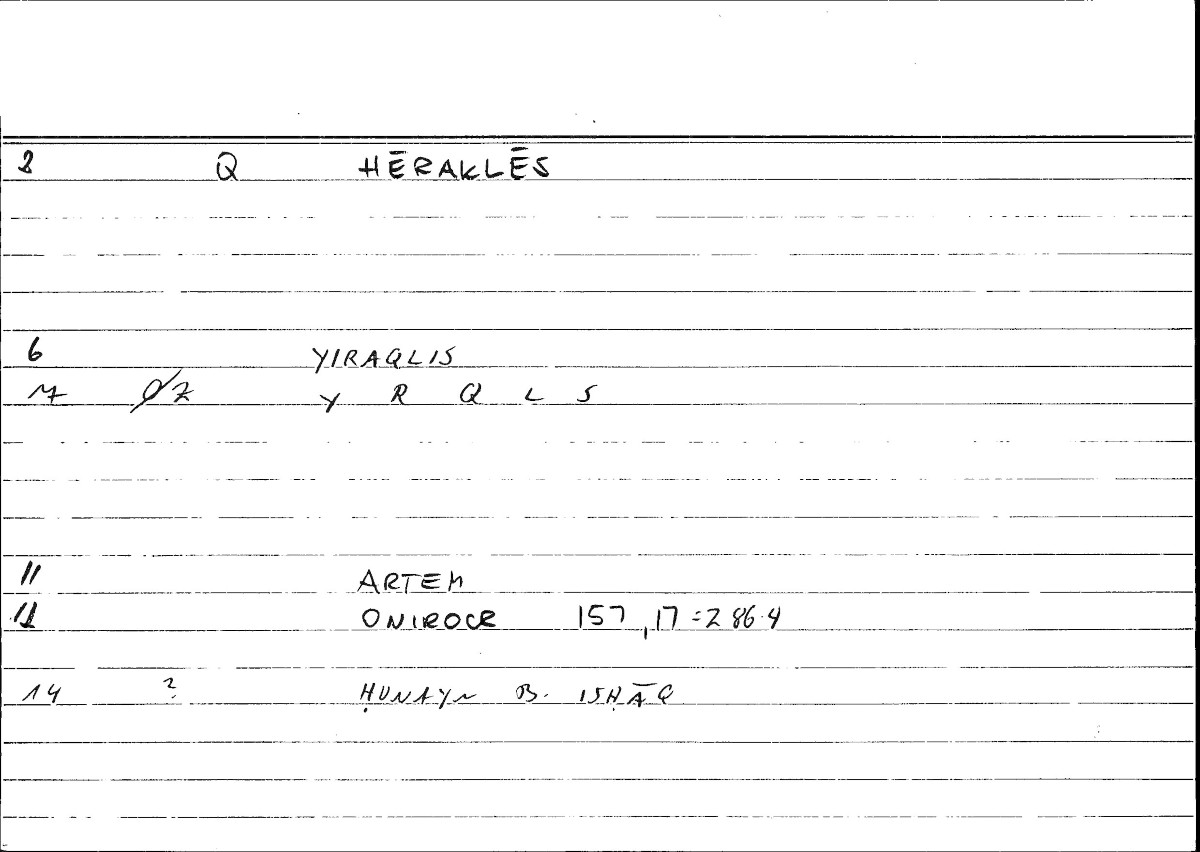 2 Q HĒRAKLĒS
6 YIRAQLIS
7 Ø Z Y R Q L S
11 ARTEM
12 ONIROCR 157,17=286.4
14 ? ḤUNAYN B. ISḤĀQ